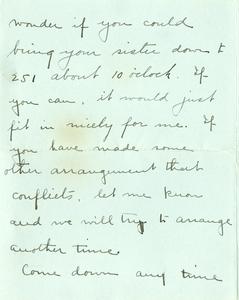 wonder if you could
bring your sister down to
251 about 10 o'clock. If
you can, it would just
fit in nicely for me. If
you have made some
other arrangement that
conflicts, let me know
and we will try to arrange
another time.
Come down any time